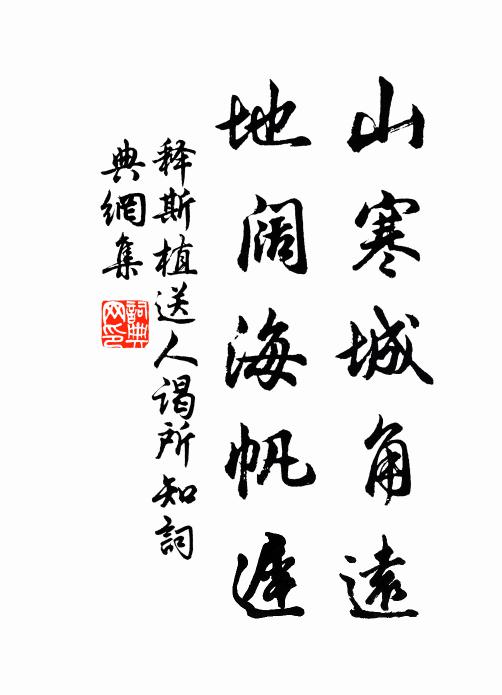 山寒城角遠
地阔海帆遲
释斯植送人谒所知詞
典網集
詞典网印